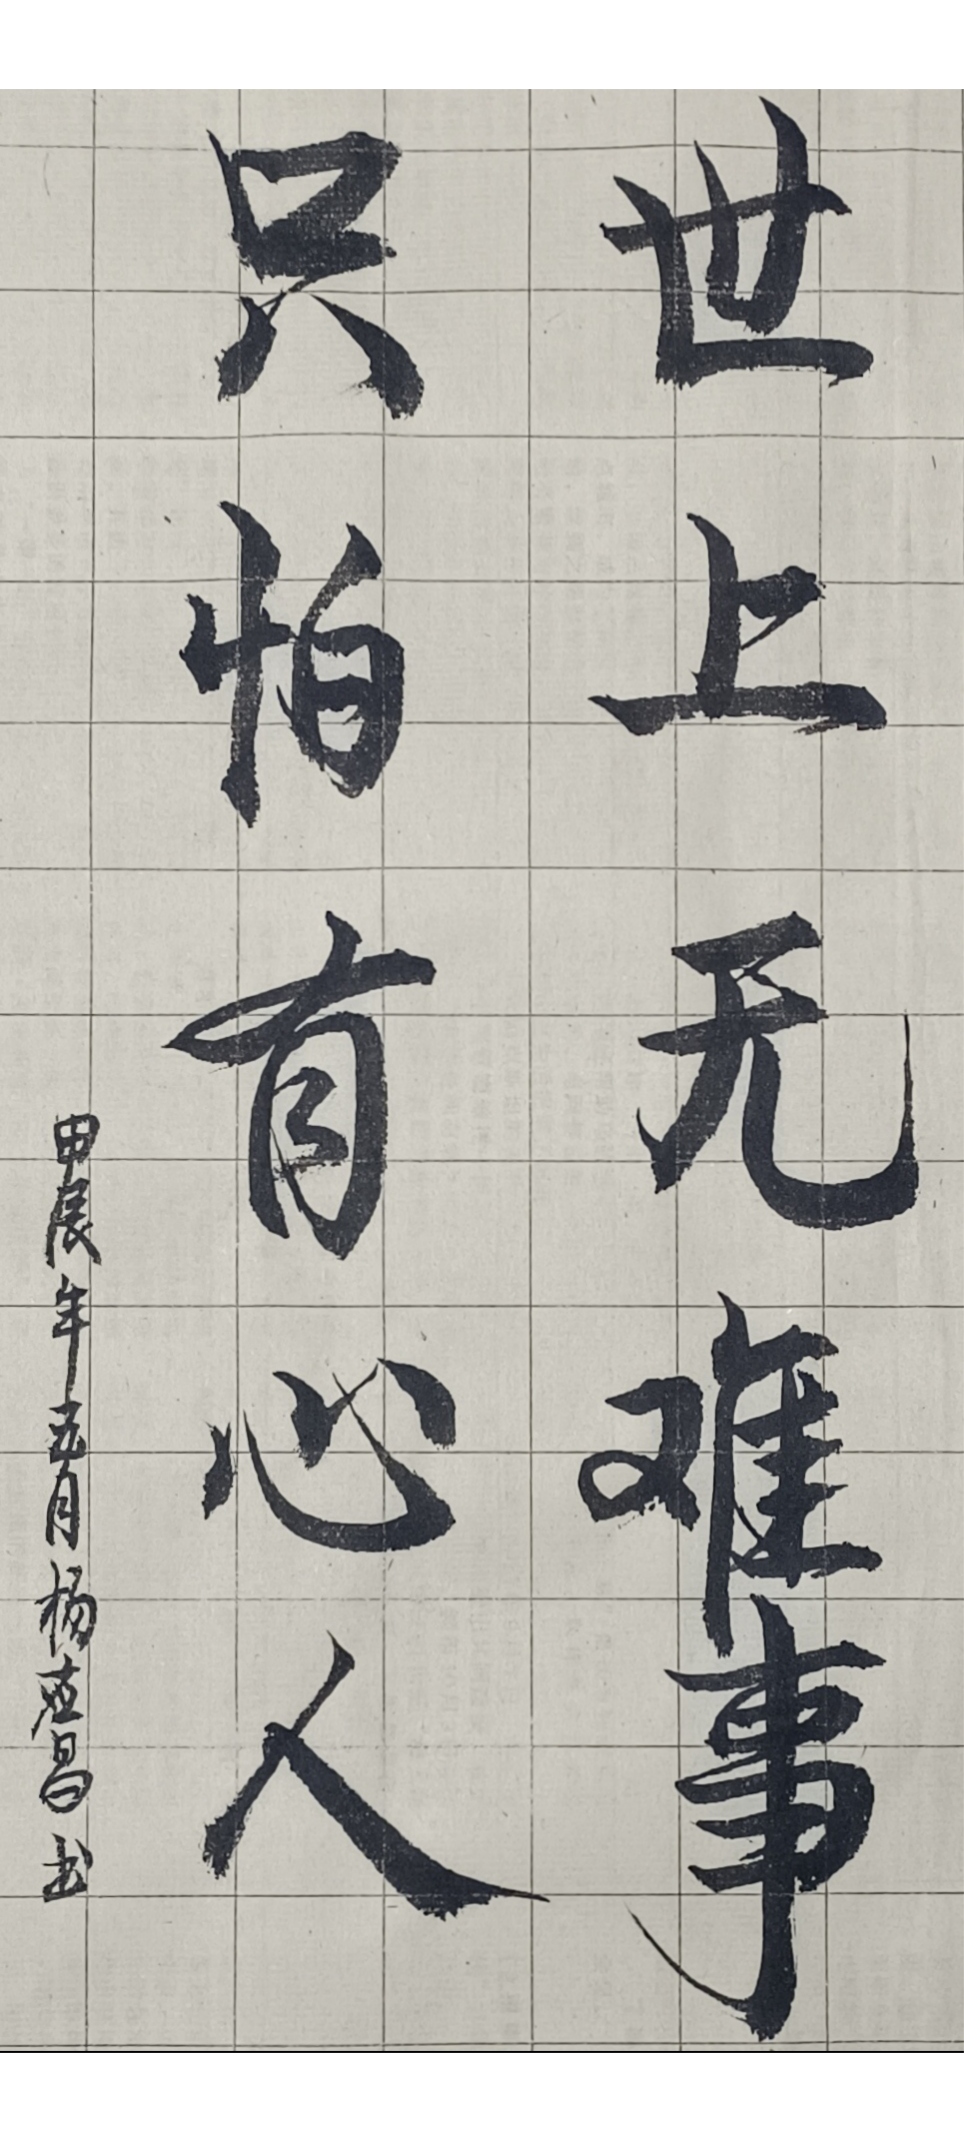 世上无难事
只怕有心人
甲辰年五月杨应昌书